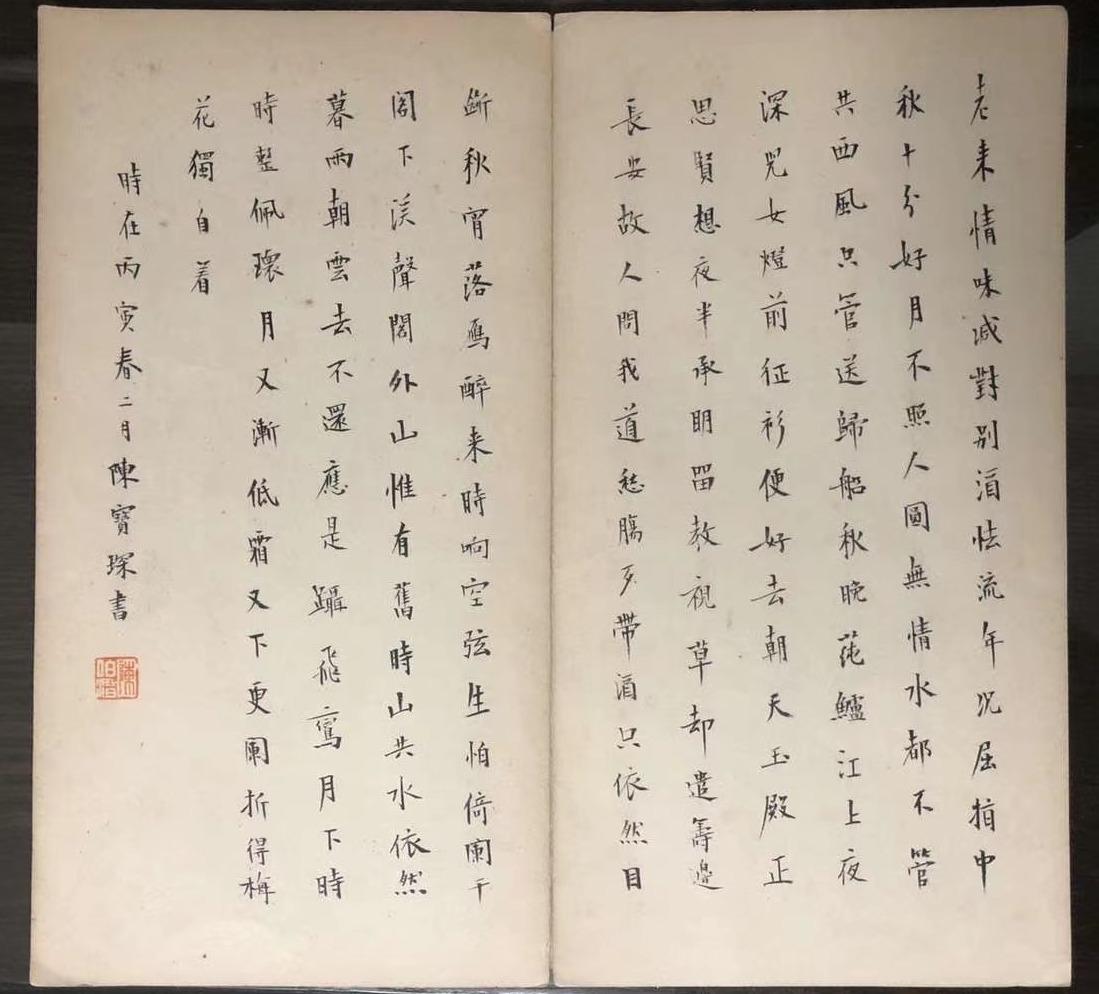 老来情味減對别酒怯流年况屈指中
秋十分好月不照人圓無情水都不管
共西風只管送歸船秋晚蒓鱸江上夜
深兒女燈前征衫便好去朝天玉殿正
思賢想夜半承明留教視草却遣籌邊
長安故人問我道愁腸殢酒只依然目
斷秋宵落鴈醉来時响空弦生怕倚闌干
閣下溪聲閣外山惟有舊時山共水依然
暮雨朝雲去不還應是躡飛鸞月下時
時整佩環月又漸低霜又下更闌折得梅
花獨自看
時在丙寅春二月陳寶琛書
陳伯潛